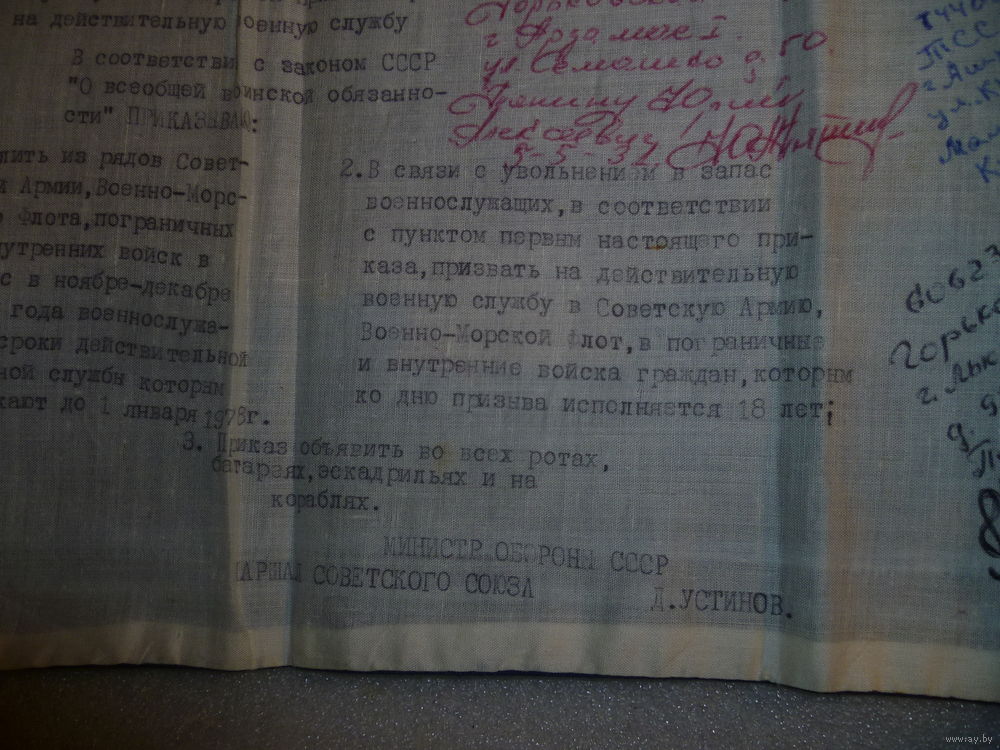 на действительную военную службу
В соответстви с законом СССР
"О всеобщей воинской обязанно-
сти" ПРИКАЗЫВАЮ:
лить из рядов Совет-
й Армии,Военно-Морс-
о Флота,пограничных
нутренних войск в
с в ноябре-декабре
года военнослужа-
сроки действительной
ной службы которым
кают до 1 января 1978г.
г Арзамас
ул Семашко д. 50
Юрию
Алексеевичу
2.В связи с увольнением в запас
военнослужащих,в соответствии
с пунктом первым настоящего при-
каза,призвать на действительную
военную службу в Советскую Армию,
Военно-Морской флот,в пограничные
и внутренние войска граждан,которым
ко дню призыва исполняется 18 лет;
3. Приказ объявить во всех ротах,
батареях,эскадрильях и на
кораблях.
МИНИСТР ОБОРОНЫ СССР
МАРШАЛ СОВЕТСКОГО СОЮЗА
Д.УСТИНОВ.
ТСС
г.Аш
ул.К
60623
горько
www.ay.by